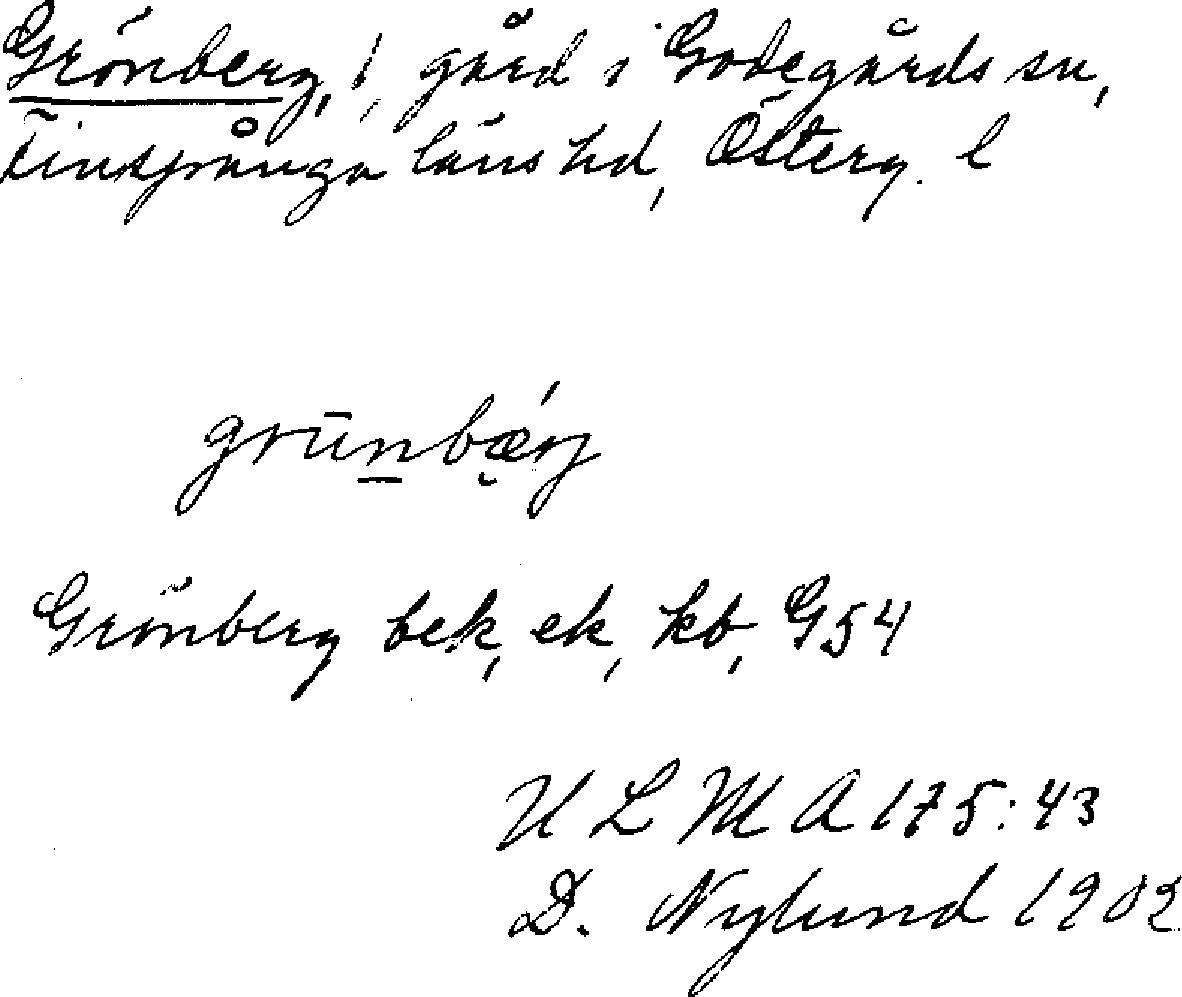 Grönberg, 1, gård i Godegårds sn,
Finspånga läns hd, Österg. l
grūn̲bǽ̬rj
Grönberg bek, ek, kb, G54
U L M A 175:43
D. Nylund 1902